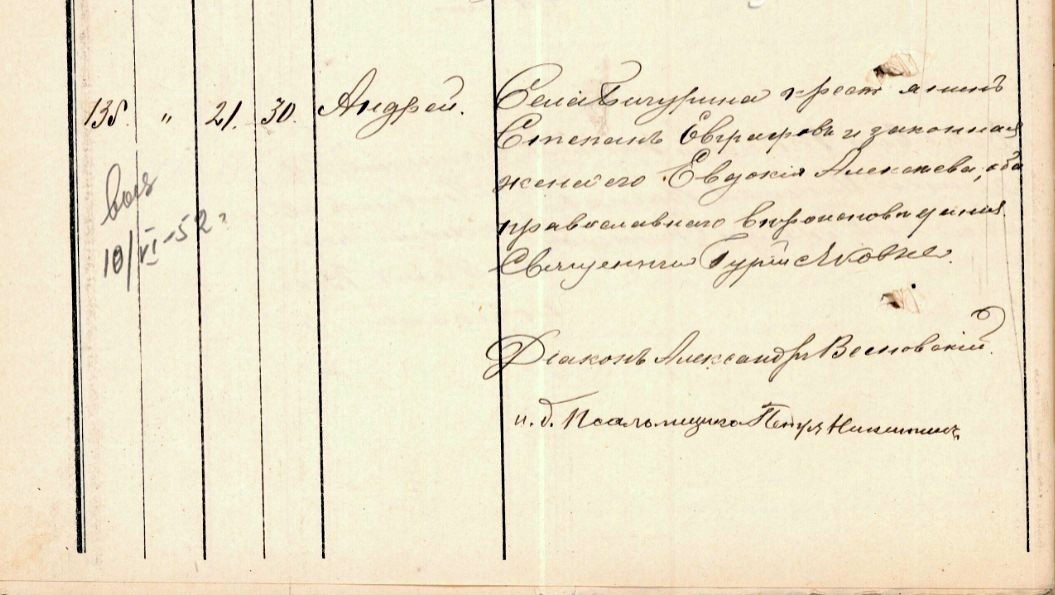 135. " 21. 30. Андрей.
Села Бичурина крестьянинъ
Степанъ Евграфовъ и законная
жена его Евдокія Алексѣева, оба
православнаго вѣроисповѣданія.
Священникъ Гурій
Діаконъ Александръ Весновскій.
и. д. Псаломщика Петръ Никитинъ
10/VI-52 г